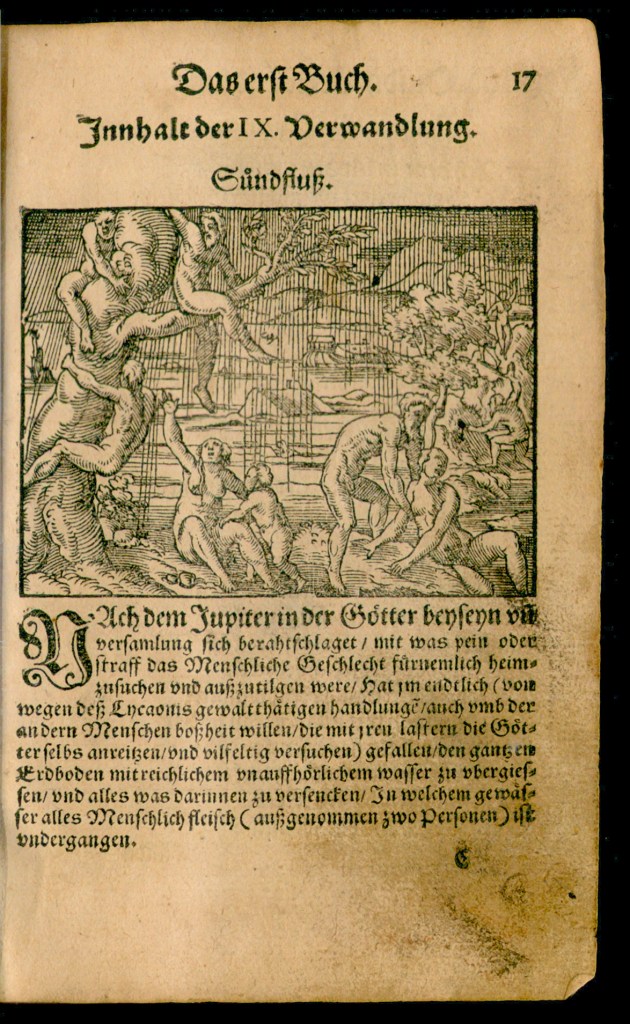 Das erst Buch. 17
Innhalt der IX. Verwandlung.
Sündfluß.
NAch dem Jupiter in der Götter beyseyn vñ
versamlung sich berahtschlaget / mit was pein oder
straff das Menschliche Geschlecht fürnemlich heim⸗
zusuchen vnd außzutilgen were / Hat jm endtlich (von
wegen deß Lycaonis gewaltthätigen handlungẽ / auch vmb der
andern Menschen boßheit willen / die mit jren lastern die Göt⸗
ter selbs anreitzen / vnd vilfeltig versuchen) gefallen / den gantzen
Erdboden mit reichlichem vnauffhörlichem wasser zu vbergies⸗
sen / vnd alles was darinnen zu versencken / In welchem gewäs⸗
ser alles Menschlich fleisch (außgenommen zwo Personen) ist
vndergangen.
C